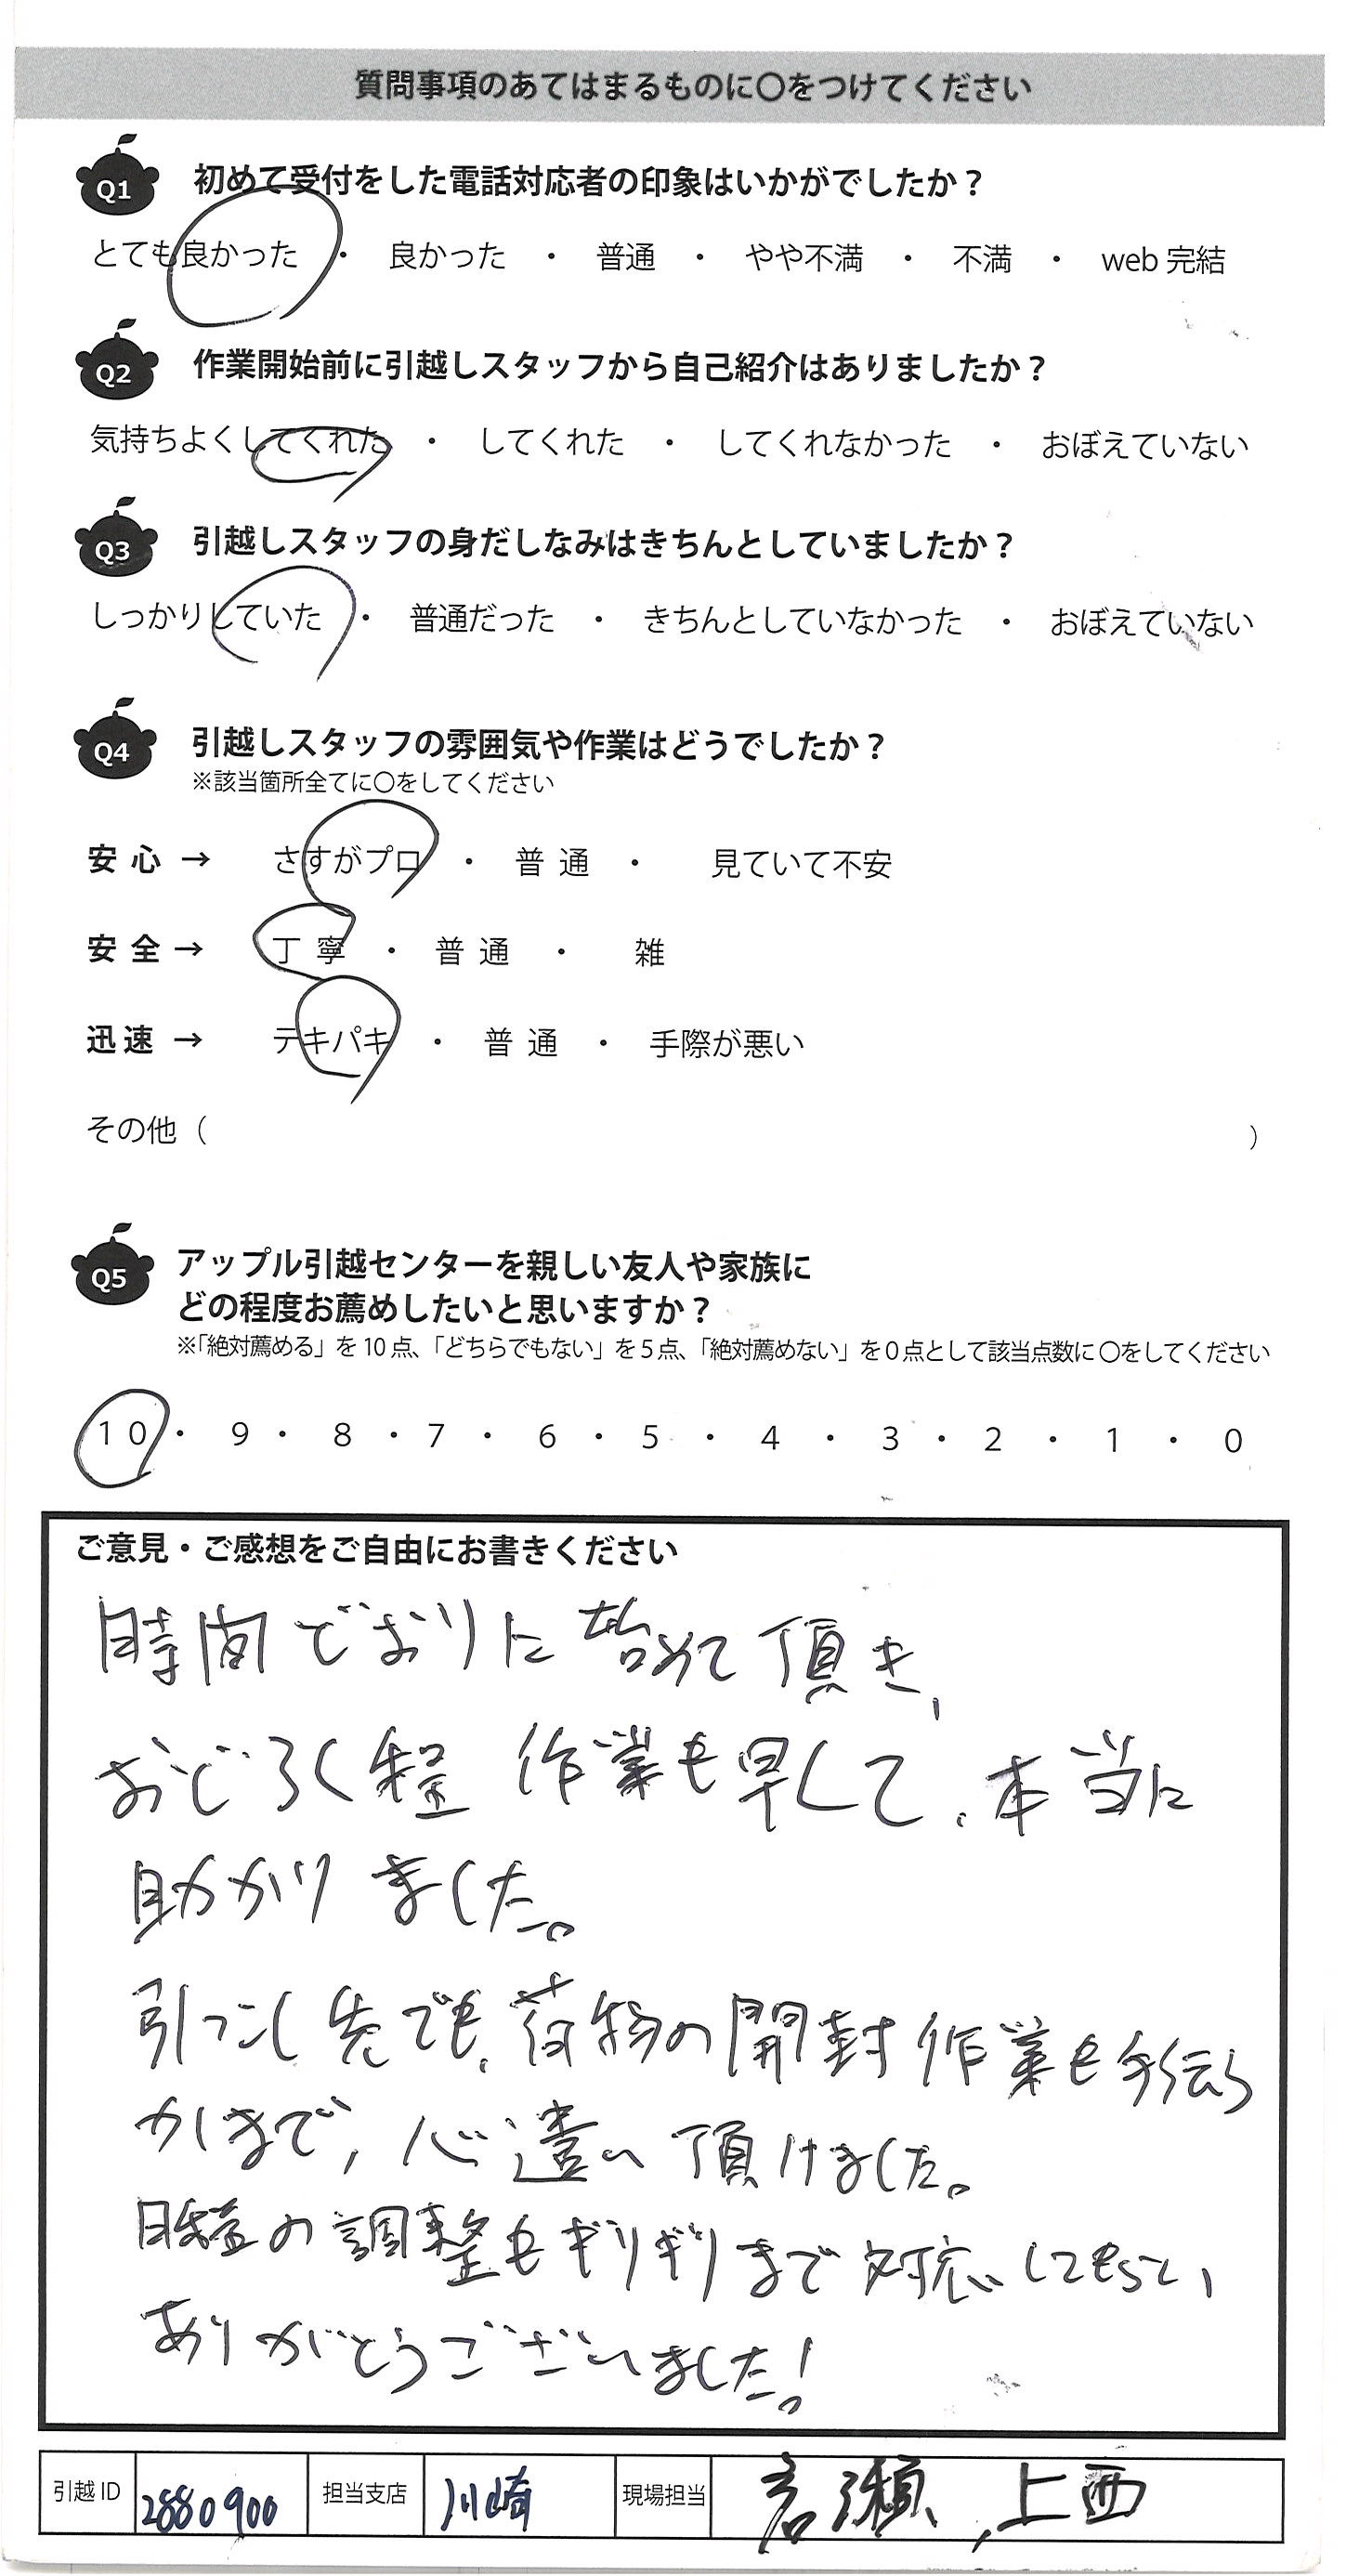 質問事項のあてはまるものに〇をつけてください
Q1 初めて受付をした電話対応者の印象はいかがでしたか？
とても良かった ・ 良かった ・ 普通 ・ やや不満 ・ 不満 ・ web 完結
Q2 作業開始前に引越しスタッフから自己紹介はありましたか？
気持ちよくしてくれた ・ してくれた ・ してくれなかった ・ おぼえていない
Q3 引越しスタッフの身だしなみはきちんとしていましたか？
しっかりしていた ・ 普通だった ・ きちんとしていなかった ・ おぼえていない
Q4 引越しスタッフの雰囲気や作業はどうでしたか？
※該当箇所全てに〇をしてください
安心 → さすがプロ ・ 普通 ・ 見ていて不安
安全 → 丁寧 ・ 普通 ・ 雑
迅速 → テキパキ ・ 普通 ・ 手際が悪い
その他（ ）
Q5 アップル引越センターを親しい友人や家族に
どの程度お薦めしたいと思いますか？
※「絶対薦める」を10点、「どちらでもない」を5点、「絶対薦めない」を0点として該当点数に〇をしてください
10 ・ 9 ・ 8 ・ 7 ・ 6 ・ 5 ・ 4 ・ 3 ・ 2 ・ 1 ・ 0
ご意見・ご感想をご自由にお書きください
時間どおりに始めて頂き、
おどろく程 作業も早くて、本当に
助かりました。
引っこし先でも、荷物の開封作業も手伝う
かまで、心遣い頂けました。
日程の調整もギリギリまで対応してもらい、
ありがとうございました！
引越ID 2880900 担当支店 川崎 現場担当 瀬、上西